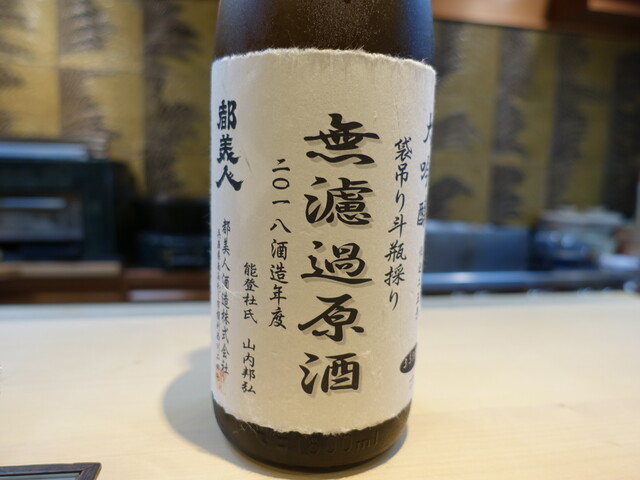 大吟醸
袋吊り斗瓶採り
無濾過原酒
二〇一八酒造年度
能登杜氏 山内邦弘
都美人
都美人酒造株式会社
1800ml